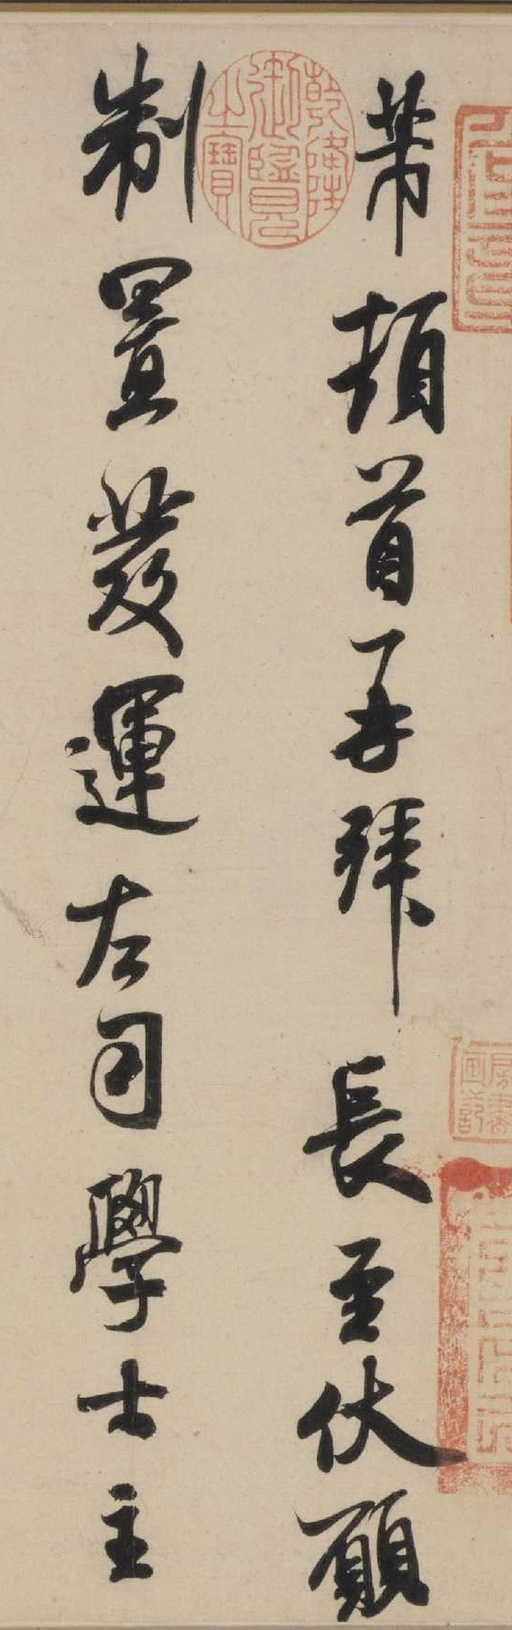 芾頓首再拜長至伏願
制置發運左司學士主
乾隆御覽之寶